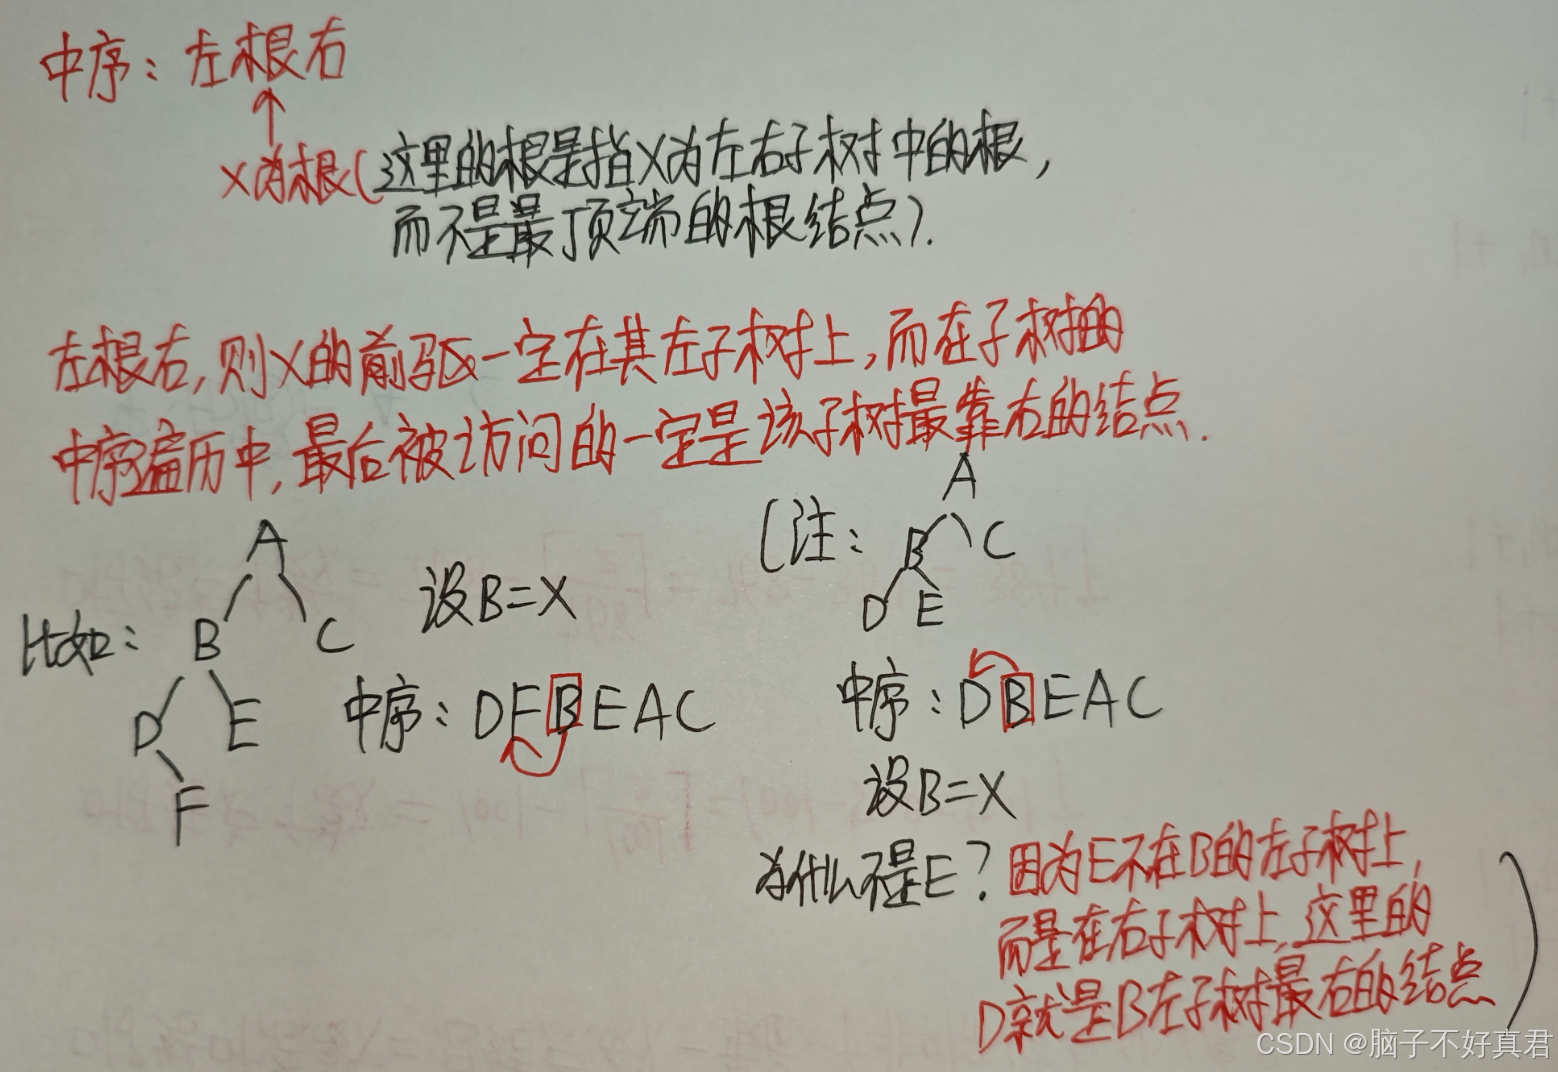 中序：左根右
X为根(这里的根是指X为左右子树中的根，
而不是最顶端的根结点).
左根右，则X的前驱一定在其左子树上，而在子树的
中序遍历中，最后被访问的一定是该子树最靠右的结点.
比如：
A
B C
D E
F
设B=X
中序：DFBEAC
(注：
A
B C
D E
中序：DBEAC
设B=X
为什么不是E？因为E不在B的左子树上，
而是在右子树上，这里的
D就是B左子树最右的结点)
CSDN @脑子不好真君